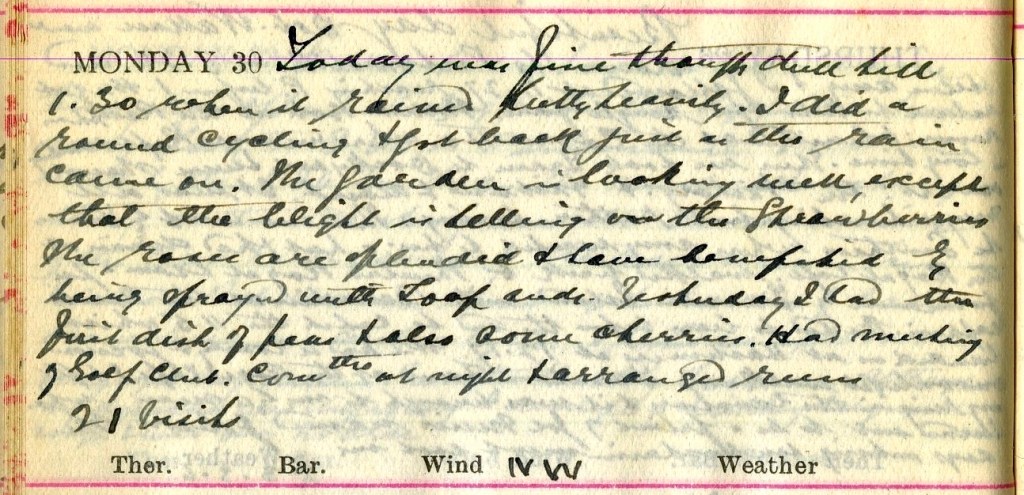 MONDAY 30 Today was fine though dull till
1.30 when it rained pretty heavily. I did a
round cycling & got back just as the rain
came on. The garden is looking well, except
that the blight is telling on the Strawberries
The roses are splendid & have benefited by
being sprayed with Soap suds. Yesterday I had the
first dish of peas & also some cherries. Had meeting
of Golf Club. Comttee at night & arranged
21 Visits
Ther. Bar. Wind NW Weather